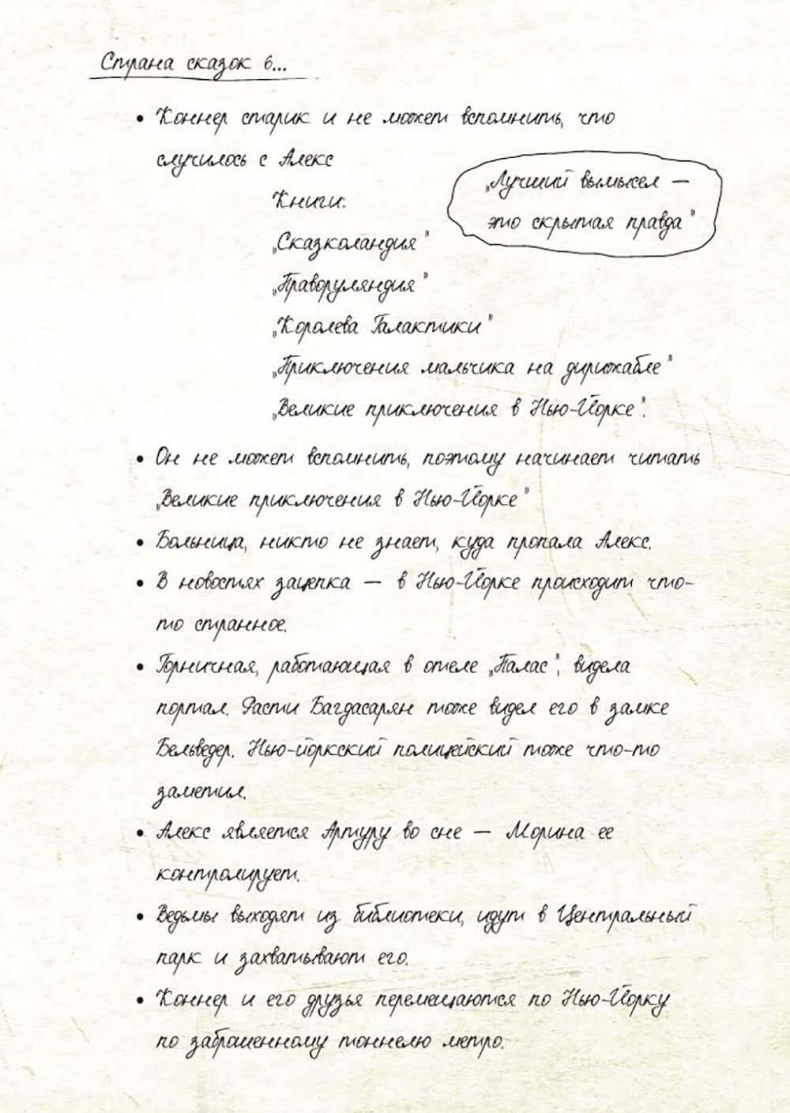 Страна сказок 6...
• Коннер старик и не может вспомнить, что
случилось с Алекс
„Лучший вымысел —
это скрытая правда"
Книги:
„Сказколандия"
„Праворуляндия"
„Королева Галактики"
„Приключения мальчика на дирижабле"
„Великие приключения в Нью-Йорке".
• Он не может вспомнить, поэтому начинает читать
„Великие приключения в Нью-Йорке"
• Больница, никто не знает, куда пропала Алекс.
• В новостях зацепка — в Нью-Йорке происходит что-
то странное.
• Горничная, работающая в отеле „Палас", видела
портал. Расти Багдасарян тоже видел его в замке
Бельведер. Нью-йоркский полицейский тоже что-то
заметил.
• Алекс является Артуру во сне — Морина ее
контролирует.
• Ведьмы выходят из библиотеки, идут в Центральный
парк и захватывают его.
• Коннер и его друзья перемещаются по Нью-Йорку
по заброшенному тоннелю метро.